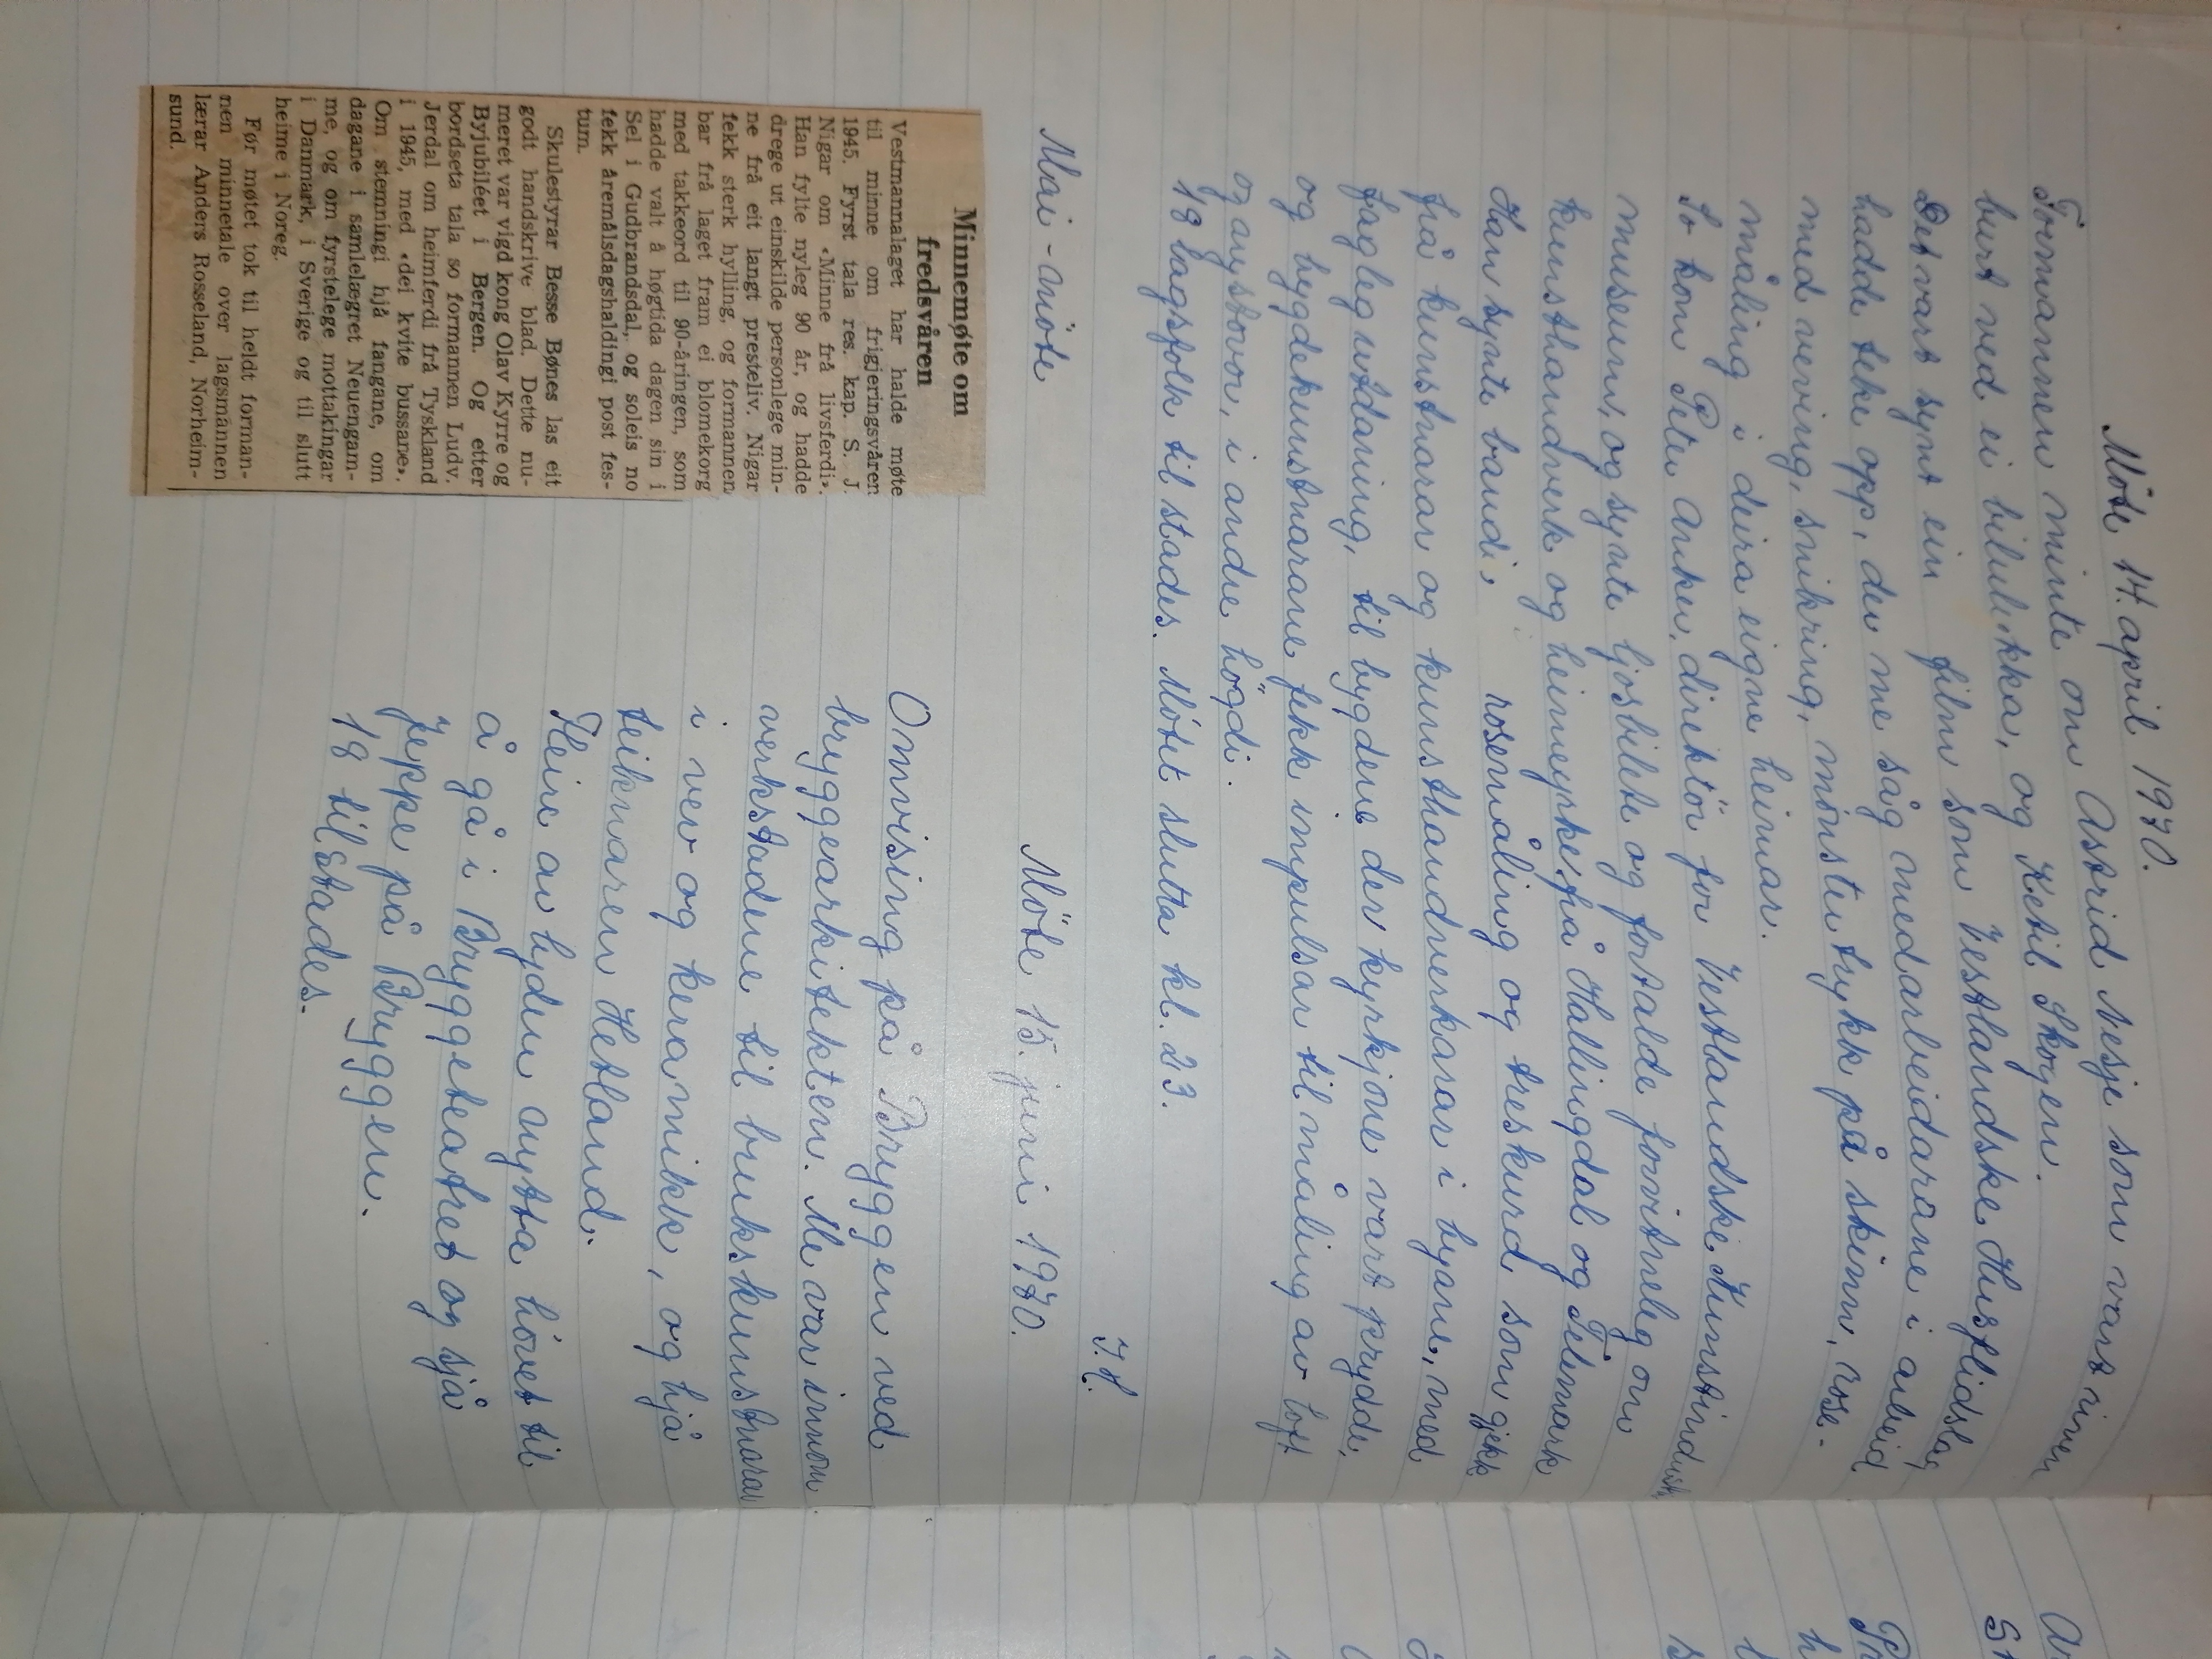 Möte 14. april 1970.
Formannen minte om Astrid Nesje som vart riven
burt ved ei bilulikka, og Ketil Skogen.
Det vart synt ein film som Vestlandske Husflidslag
hadde teke opp, der me såg medarbeidarane i arbeid
med veving, snikring, mönstertrykk på skinn, rose-
måling i deira eigne heimar.
So kom Peter Anker, direktör for Vestlandske Kunstindustri
museum, og synte ljosbilete og fortalde forvitneleg om
kunsthandverk og heimeyrke frå Hallingdal og Telemark
Han synte bandi, rosemåling og treskurd som gjekk
frå kunstnarar og kunsthandverkarar i byane, med
fagleg utdaning, til bygdene der kyrkjone vart prydde,
og bygdekunstnarane fekk impulsar til måling av loft
og austovor, i andre högdi.
19 lagsfolk til stades. Mötet slutta kl. 23.
I. H.
Mai-möte
Minnemøte om
fredsvåren
Vestmannalaget har halde møte
til minne om frigjeringsvåren
1945. Fyrst tala res. kap. S. J.
Nigar om «Minne frå livsferdi».
Han fylte nyleg 90 år, og hadde
drege ut einskilde personlege min-
ne frå eit langt presteliv. Nigar
fekk sterk hylling, og formannen
bar frå laget fram ei blomekorg
med takkeord til 90-åringen, som
hadde valt å høgtida dagen sin i
Sel i Gudbrandsdal, og soleis no
fekk åremålsdagshaldingi post fes-
tum.
Skulestyrar Besse Bønes las eit
godt handskrive blad. Dette nu-
meret var vigd kong Olav Kyrre og
Byjubiléet i Bergen. Og etter
bordseta tala so formannen Ludv.
Jerdal om heimferdi frå Tyskland
i 1945, med «dei kvite bussane».
Om stemningi hjå fangane, om
dagane i samlelægret Neuengam-
me, og om fyrstelege mottakingar
i Danmark, i Sverige og til slutt
heime i Noreg.
Før møtet tok til heldt forman-
nen minnetale over lagsmannen
lærar Anders Rosseland, Norheim-
sund.
Möte 15. juni 1970.
Omvising på Bryggen ved
bryggearkitekten. Me var innom
verkstadene til brukskunstnarar
i vev og keramikk, og hjå
teiknaren Hetland.
Fleire av lyden nytta hövet til
å gå i Bryggeteatret og sjå
Jeppe på Bryggen.
18 til stades.